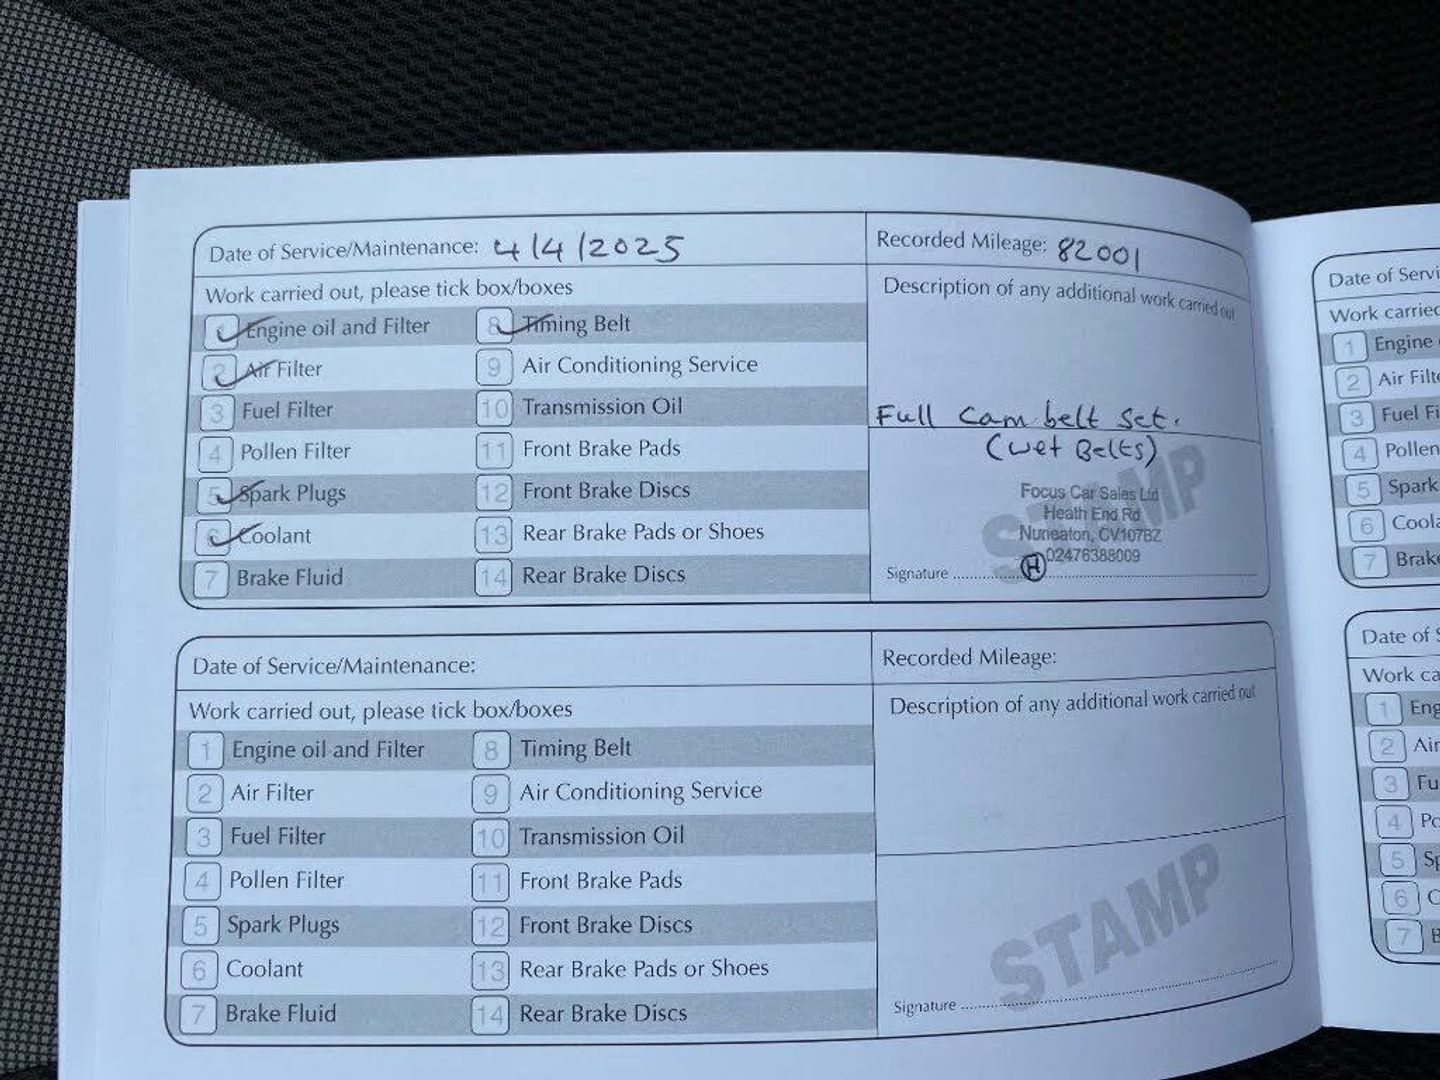 Date of Service/Maintenance: 4/4/2025
Recorded Mileage: 82001
Work carried out, please tick box/boxes
1 Engine oil and Filter
2 Air Filter
3 Fuel Filter
4 Pollen Filter
5 Spark Plugs
6 Coolant
7 Brake Fluid
8 Timing Belt
9 Air Conditioning Service
10 Transmission Oil
11 Front Brake Pads
12 Front Brake Discs
13 Rear Brake Pads or Shoes
14 Rear Brake Discs
Description of any additional work carried out
Full Cam belt Set.
(Wet Belts)
STAMP
Focus Car Sales Ltd
Heath End Rd
Nuneaton, CV107BZ
02476388009
Signature H
Date of Service/Maintenance:
Recorded Mileage:
Work carried out, please tick box/boxes
1 Engine oil and Filter
2 Air Filter
3 Fuel Filter
4 Pollen Filter
5 Spark Plugs
6 Coolant
7 Brake Fluid
8 Timing Belt
9 Air Conditioning Service
10 Transmission Oil
11 Front Brake Pads
12 Front Brake Discs
13 Rear Brake Pads or Shoes
14 Rear Brake Discs
Description of any additional work carried out
STAMP
Signature
Date of Servi
Work carried
1 Engine
2 Air Filte
3 Fuel Fi
4 Pollen
5 Spark
6 Coola
7 Brake
Date of S
Work ca
1 Eng
2 Air
3 Fu
4 Po
5 Sp
6 C
7 B